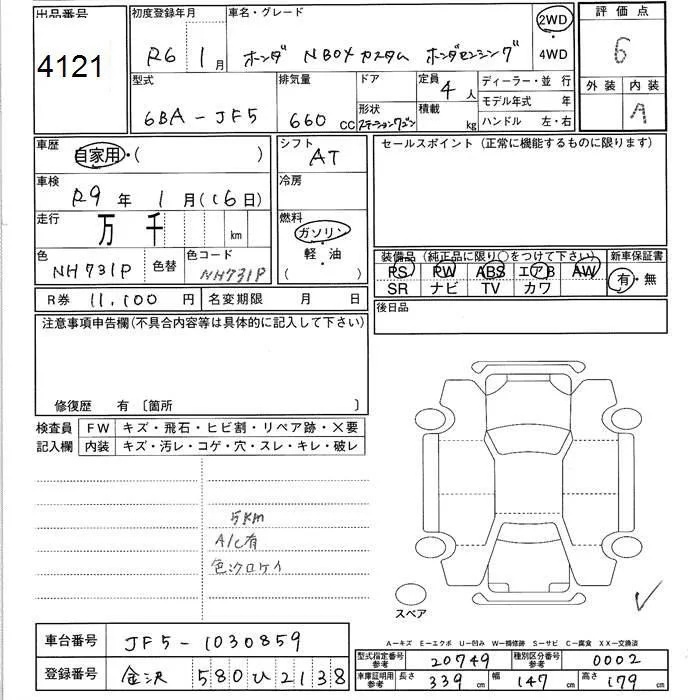 出品番号
4121
初度登録年月
R6 1月
車名・グレード
ホンダ NBOXカスタム ホンダセンシング
2WD
4WD
評価点
6
外装 内装
A
型式
6BA-JF5
排気量
660 cc
ドア
形状
ステーションワゴン
定員
4人
積載
kg
ディーラー・並 行
モデル年式 年
ハンドル 左・右
車歴
自家用・( )
シフト
AT
セールスポイント (正常に機能するものに限ります)
車検
R9年 1月(16日)
冷房
走行
万 千 km
燃料
ガソリン・
軽・油
( )
色
NH731P
色替
色コード
NH731P
装備品 (純正品に限り○をつけて下さい)
PS PW ABS エアB AW
SR ナビ TV カワ
新車保証書
有・無
R券 11,100円
名変期限 月 日
後日品
注意事項申告欄(不具合内容等は具体的に記入して下さい)
修復歴 有 〔箇所 〕
検査員
記入欄
FW キズ・飛石・ヒビ割・リペア跡・×要
内装 キズ・汚レ・コゲ・穴・スレ・キレ・破レ
5km
A/C有
色クロケイ
スペア
車台番号
JF5-1030859
登録番号
金沢 580 ひ 2138
A—キズ E—エクボ U—凹み W—補修跡 S—サビ C—腐食 XX—交換済
型式指定番号
参考
20749
種別区分番号
参考
0002
車庫証明用
参考
長さ 339 cm
幅 147 cm
高さ 179 cm